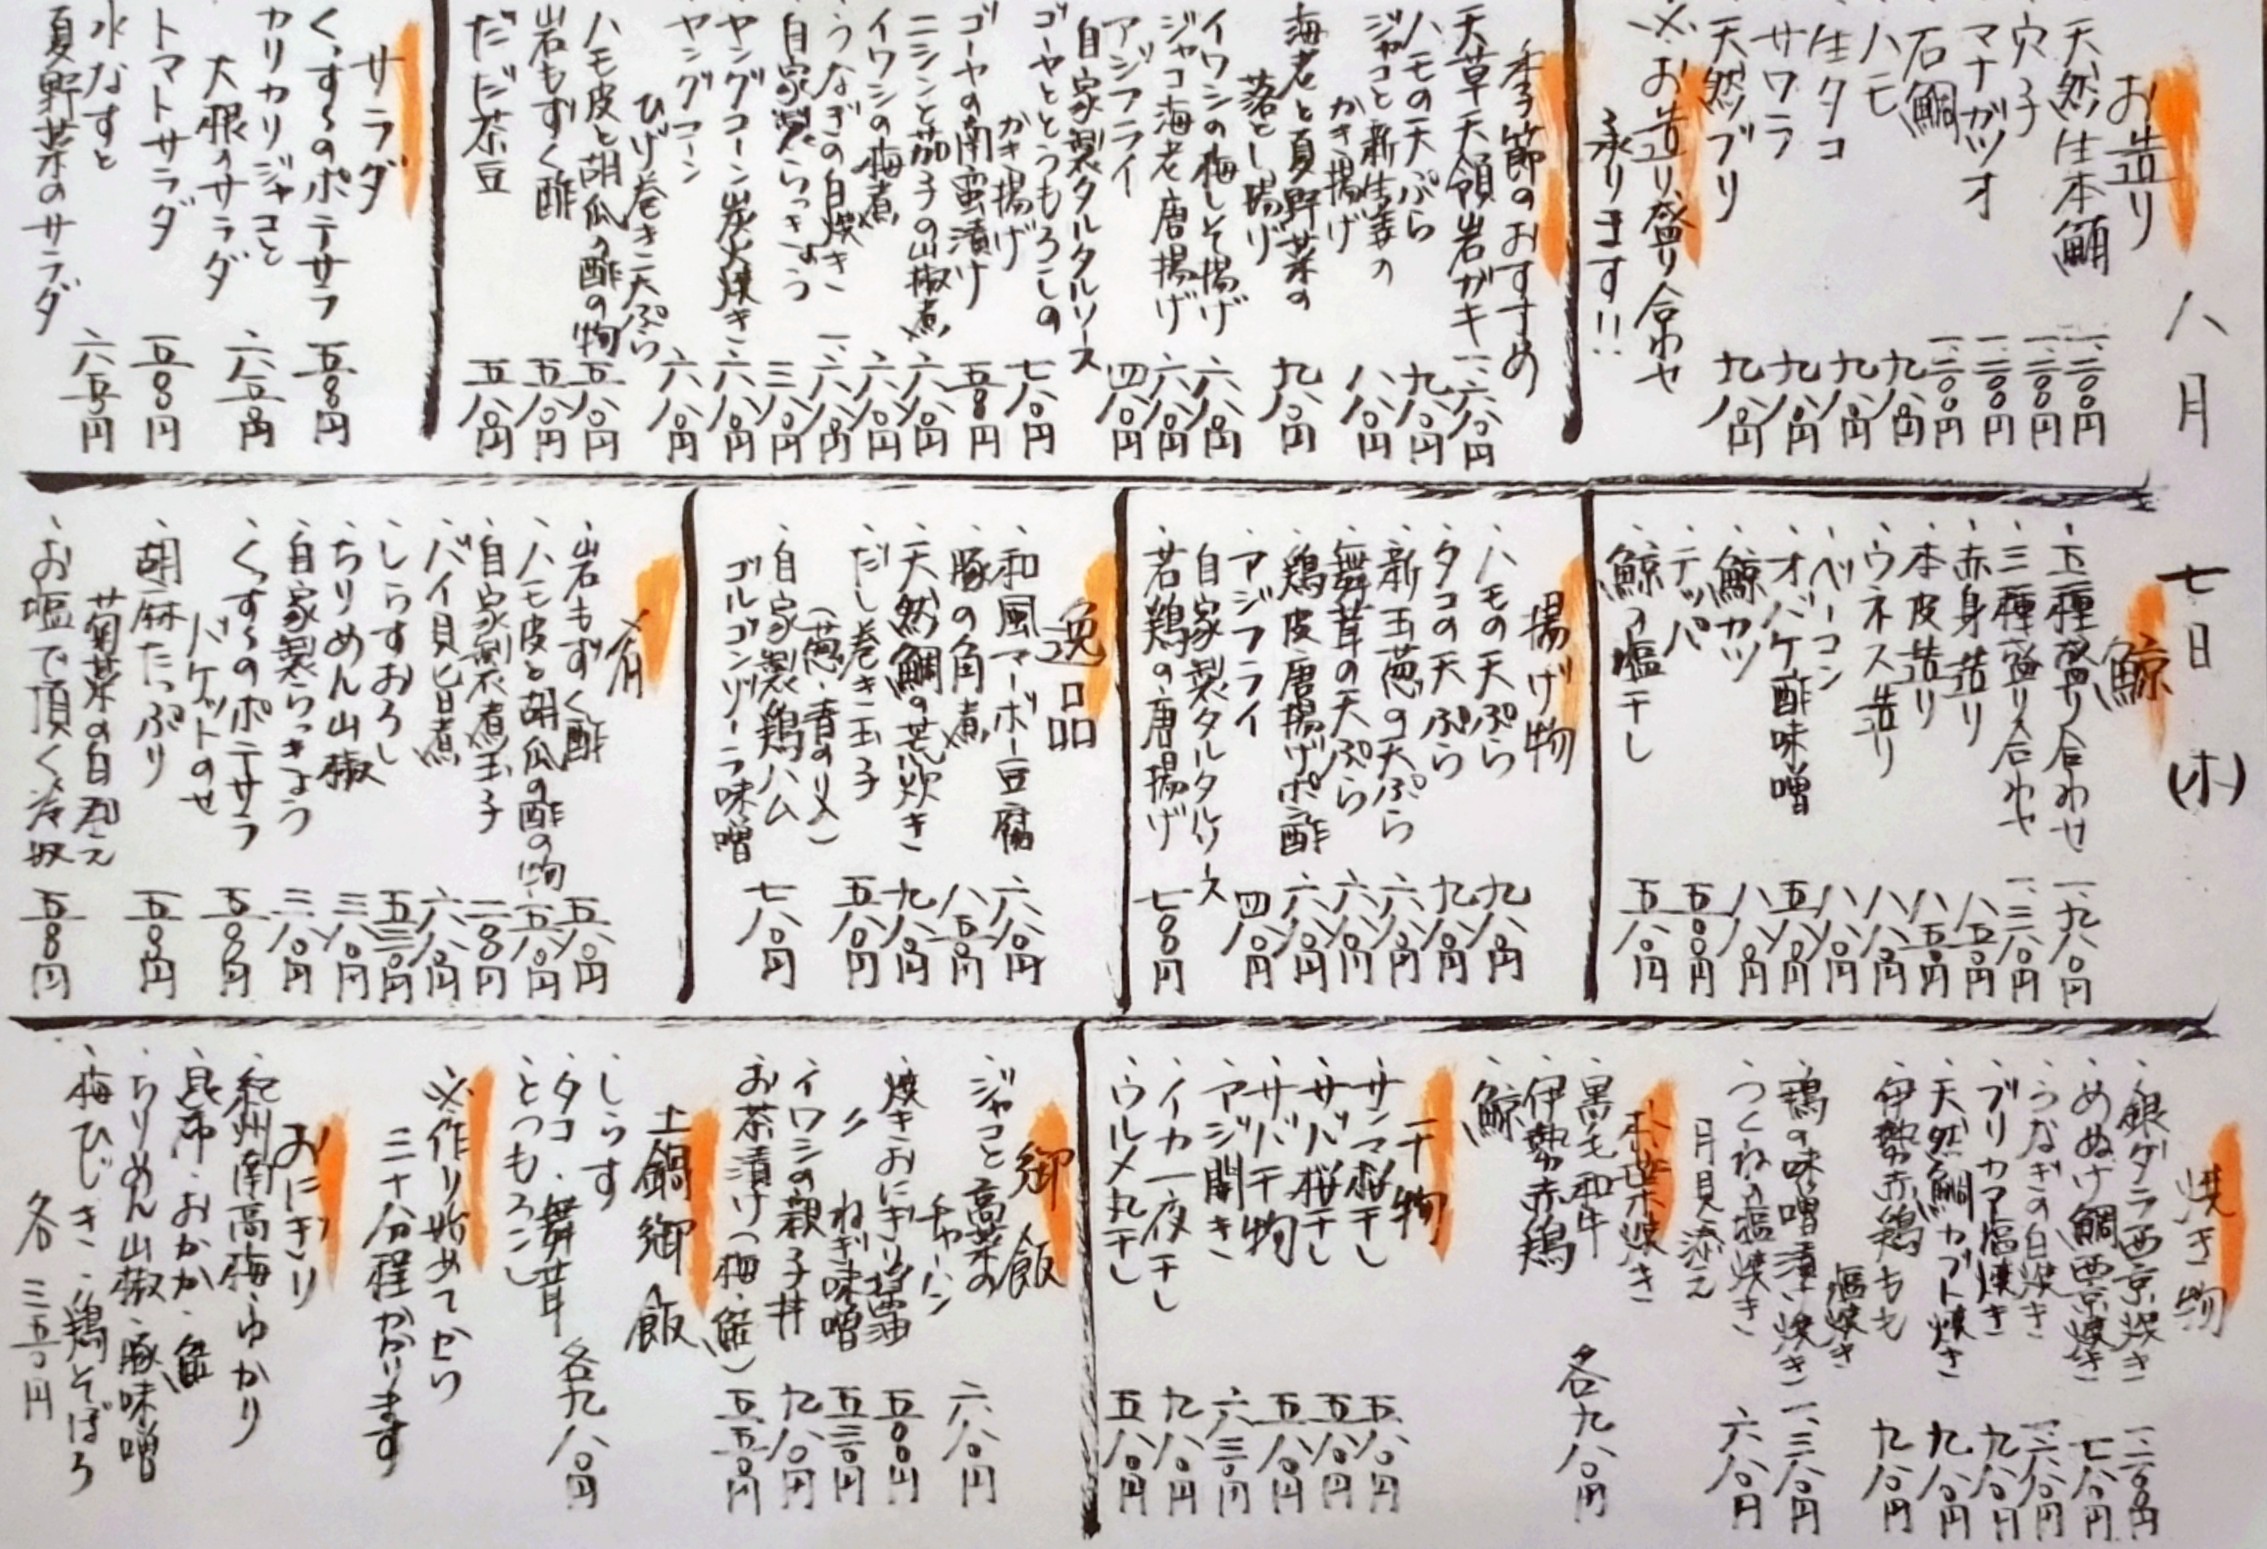 八月 七日 (木)
お造り
・天然生本鮪 一、二〇〇円
・穴子 一、二〇〇円
・マナガツオ 一、二〇〇円
・石鯛 一、二〇〇円
・ハモ 九八〇円
・生タコ 九八〇円
・サワラ 九八〇円
・天然ブリ 九八〇円
※お造り盛り合わせ
承ります!!
季節のおすすめ
天草天領岩ガキ 一、六八〇円
ハモの天ぷら 九八〇円
ジャコと新生姜の
かき揚げ 八八〇円
海老と夏野菜の
落とし揚げ 九八〇円
イワシの梅しそ揚げ 六八〇円
ジャコ海老唐揚げ 六八〇円
アジフライ 四八〇円
自家製タルタルソース
ゴーヤととうもろこしの
かき揚げ 七八〇円
ゴーヤの南蛮漬け 五〇〇円
ニシンと茄子の山椒煮 六八〇円
イワシの梅煮 六八〇円
うなぎの白焼き 一、六八〇円
自家製らっきょう 三八〇円
ヤングコーン炭火焼き 六八〇円
ヤングコーン
ひげ巻き天ぷら 六八〇円
ハモ皮と胡瓜の酢の物 五八〇円
岩もずく酢 五八〇円
だだ茶豆 五八〇円
サラダ
くっすんのポテサラ 五〇〇円
カリカリジャコと
大根のサラダ 六五〇円
トマトサラダ 五〇〇円
水なすと
夏野菜のサラダ 六五〇円
鯨
・五種盛り合わせ 一、九八〇円
・三種盛り合わせ 一、三八〇円
・赤身造り 八五〇円
・本皮造り 八五〇円
・ウネス造り 八八〇円
・ベーコン 八八〇円
・オバケ酢味噌 五八〇円
・鯨カツ 八八〇円
・テッパ 五〇〇円
・鯨の塩干し 五八〇円
揚げ物
・ハモの天ぷら 九八〇円
・タコの天ぷら 九八〇円
・新玉葱の天ぷら 六八〇円
・舞茸の天ぷら 六八〇円
・鶏皮唐揚げポン酢 六八〇円
・アジフライ 四八〇円
自家製タルタルソース
・若鶏の唐揚げ 七〇〇円
逸品
・和風マーボー豆腐 六八〇円
・豚の角煮 八五〇円
・天然鯛の荒炊き 九八〇円
・だし巻き玉子 五八〇円
(葱・青のり〆)
・自家製鶏ハム 七八〇円
ゴルゴンゾーラ味噌
肴
・岩もずく酢 五八〇円
・ハモ皮と胡瓜の酢の物 五八〇円
・自家製煮玉子 二〇〇円
・バイ貝旨煮 六八〇円
・しらすおろし 五三〇円
・ちりめん山椒 三八〇円
・自家製らっきょう 三八〇円
・くっすんのポテサラ
バケットのせ 五〇〇円
・胡麻たっぷり
菊菜の白和え 五〇〇円
・お塩で頂く冷奴 五〇〇円
焼き物
・銀ダラ西京焼き 一、二〇〇円
・めぬけ鯛西京焼き 七八〇円
・うなぎの白焼き 一、六八〇円
・ブリカマ塩焼き 九八〇円
・天然鯛カブト焼き 九八〇円
・伊勢赤鶏もも
塩焼き 九八〇円
・鶏の味噌漬け焼き 一、三八〇円
・つくねの塩焼き 六八〇円
月見添え
朴葉焼き
・黒毛和牛
・伊勢赤鶏
・鯨
各九八〇円
干物
・サンマ桜干し 五八〇円
・サバ桜干し 五八〇円
・サバ干物 五八〇円
・アジ開き 六三〇円
・イカ一夜干し 九八〇円
・ウルメ丸干し 五八〇円
御飯
・ジャコと高菜の
チャーハン 六八〇円
・焼きおにぎり醤油 五〇〇円
・〃 ねぎ味噌 五三〇円
・イワシの親子丼 九八〇円
・お茶漬け(梅・鮭) 五五〇円
土鍋御飯
・しらす
・タコ・舞茸
・とうもろこし
各九八〇円
※作り始めてから
三十分程かかります
おにぎり
・紀州南高梅・ゆかり
・昆布・おかか・鮭
・ちりめん山椒・豚味噌
・梅ひじき・鶏そぼろ
各 三五〇円